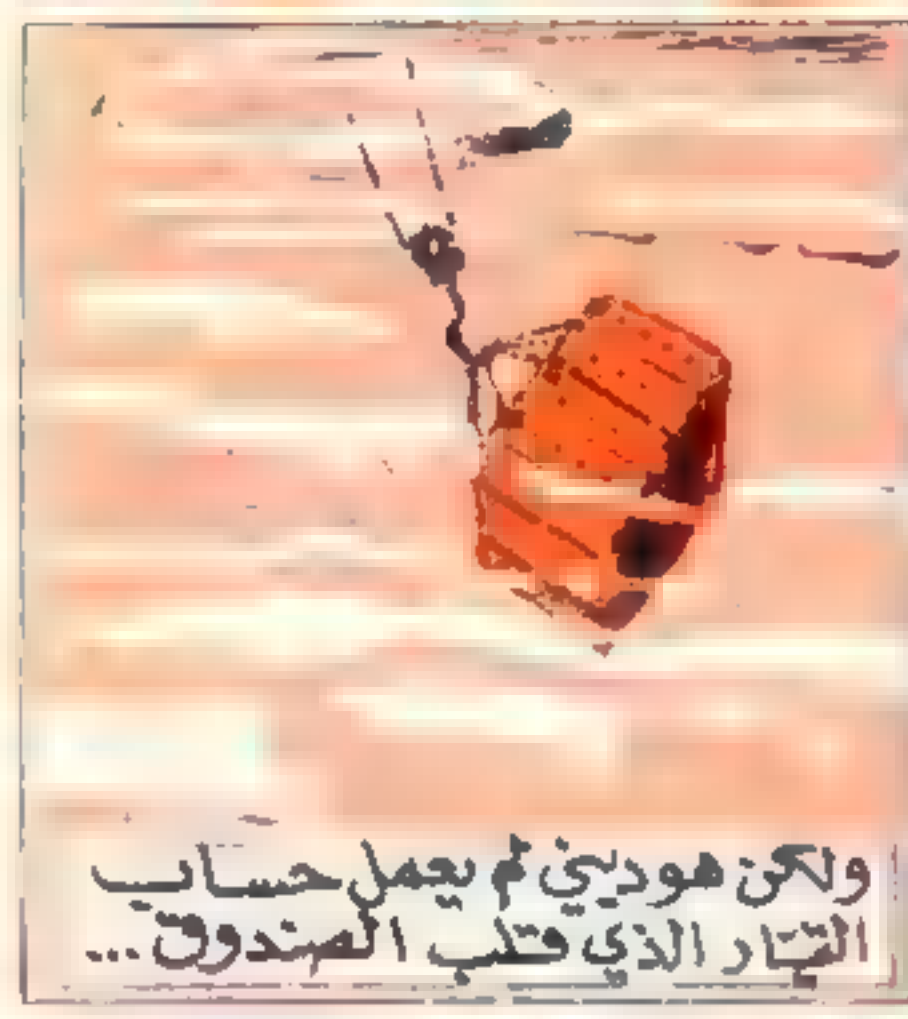 ولكن هوديني لم يعمل حساب
التيار الذي قلب الصندوق...